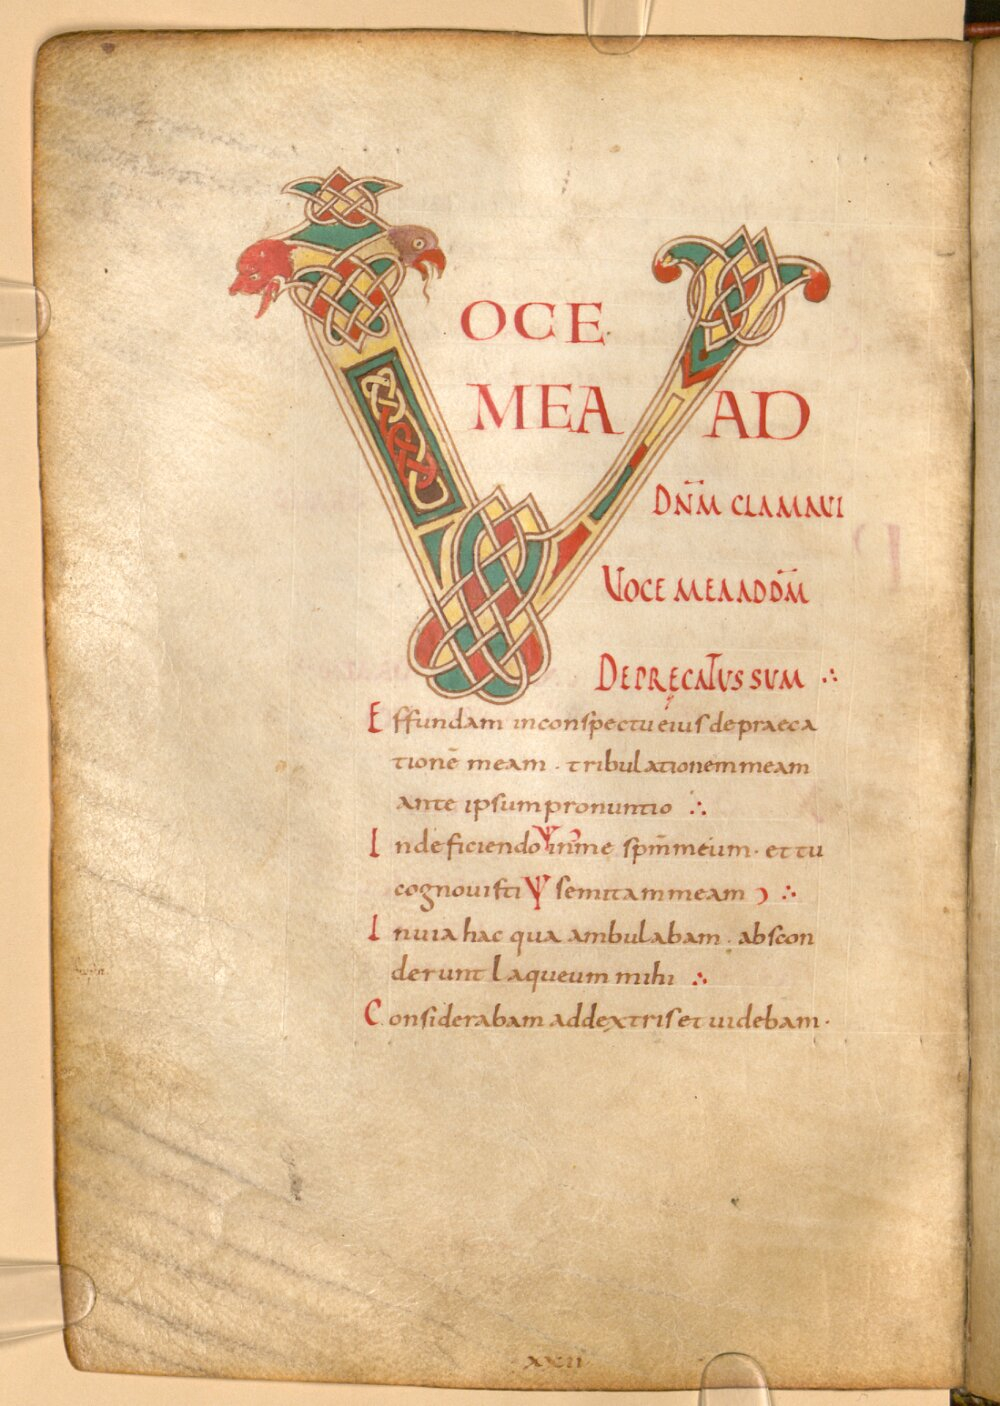 VOCE
MEA AD
DN̄M CLAMAVI
UOCE MEA AD DM̄
DEPRĘCATUS SUM ∴
Effundam in conspectu eius de praeca
tionē meam · tribulationem meam
ante ipsum pronuntio ∴
In deficiendo in me spm̄ meum · et tu
cognouisti semitam meam ∴
In uia hac qua ambulabam · abscon
derunt Laqueum mihi ∴
Considerabam ad dextris et uidebam ·
XXII